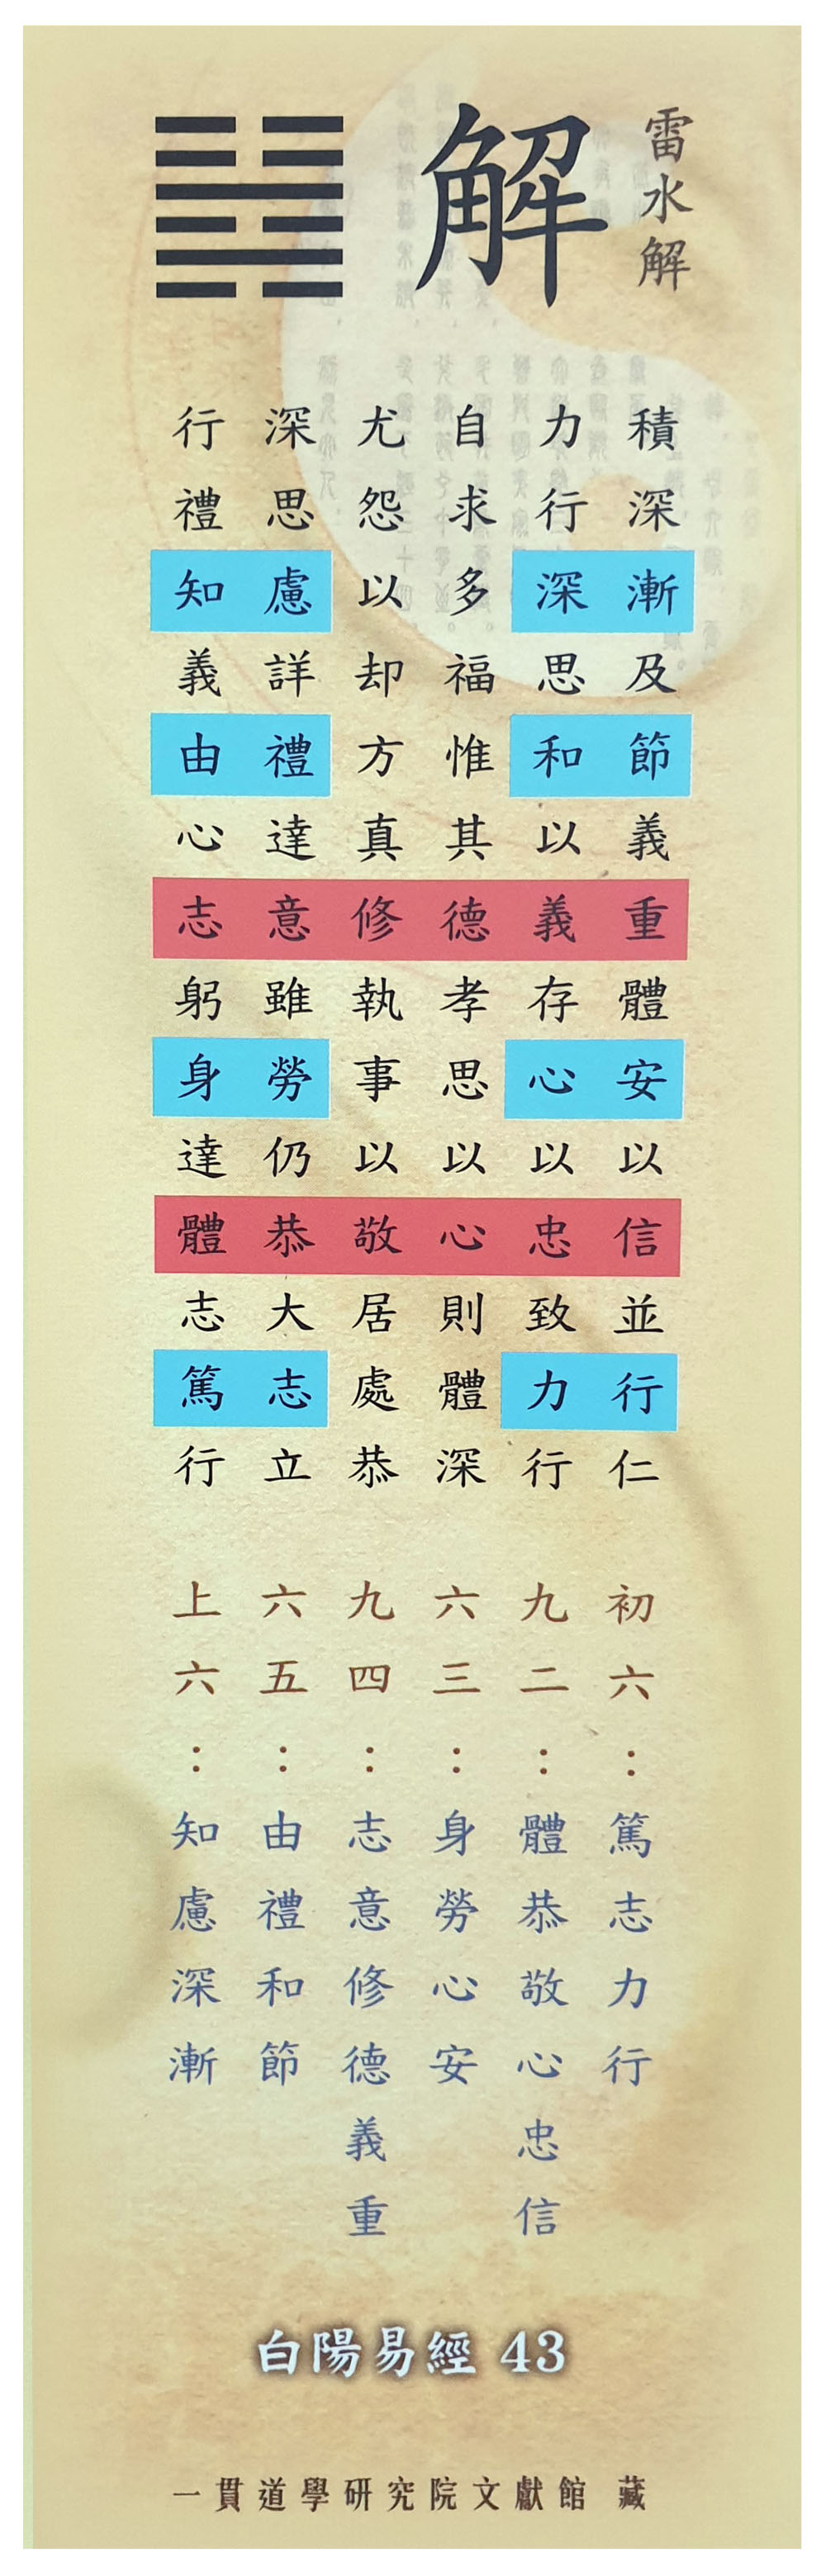 雷水解
解
積深漸及節義重體安以信並行仁
力行深思和以義存心以忠致力行
自求多福惟其德孝思以心則體深
尤怨以却方真修執事以敬居處恭
深思慮詳禮達意雖勞仍恭大志立
行禮知義由心志躬身達體志篤行
初六：篤志力行
九二：體恭敬心忠信
六三：身勞心安
九四：志意修德義重
六五：由禮和節
上六：知慮深漸
白陽易經 43
一貫道學研究院文獻館 藏